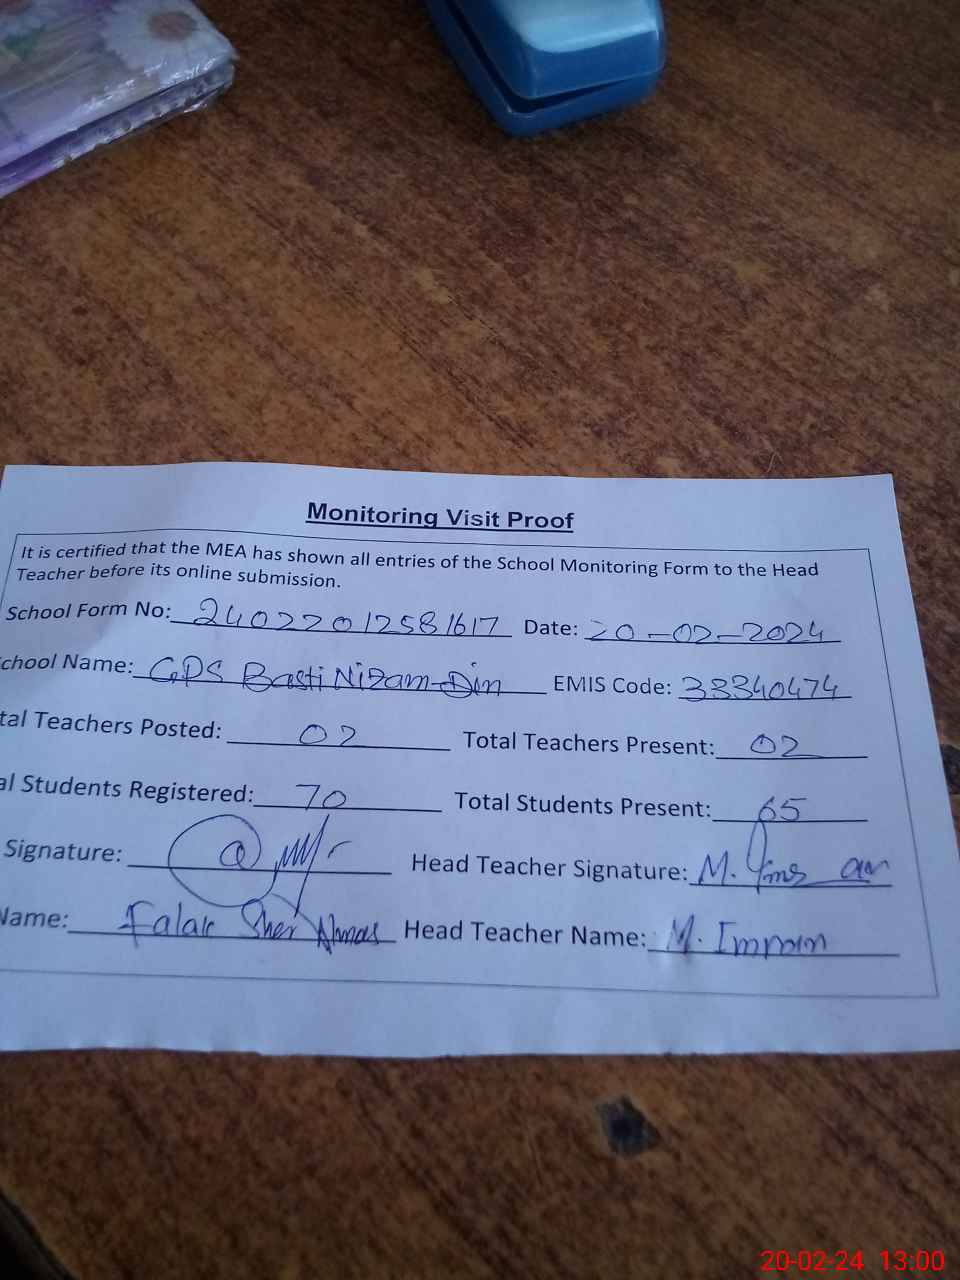 Monitoring Visit Proof
It is certified that the MEA has shown all entries of the School Monitoring Form to the Head
Teacher before its online submission.
School Form No: 24022012581617 Date: 20-02-2024
chool Name: GPS Basti Nizam-Din EMIS Code: 33340474
tal Teachers Posted: 02 Total Teachers Present: 02
al Students Registered: 70 Total Students Present: 65
Signature: Head Teacher Signature: M.
Name: Falak Sher Head Teacher Name: M. Imran
20-02-24 13:00